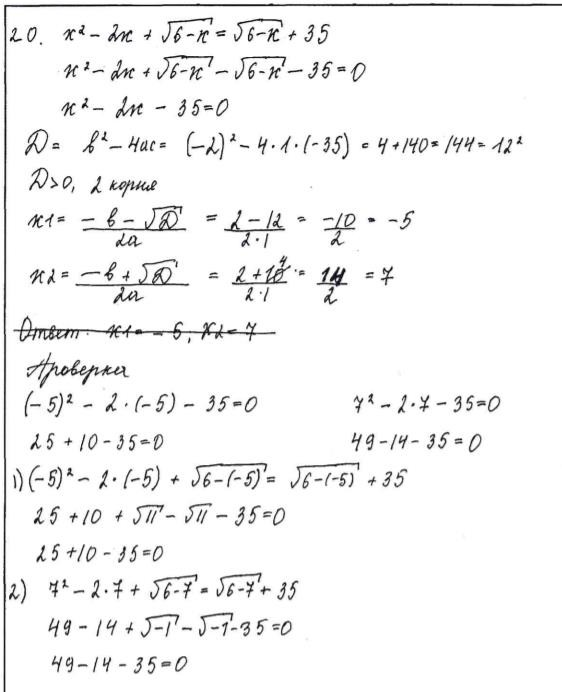 20. x² - 2x + √6-x = √6-x + 35
x² - 2x + √6-x - √6-x - 35 = 0
x² - 2x - 35 = 0
D = b² - 4ac = (-2)² - 4·1·(-35) = 4 + 140 = 144 = 12²
D>0, 2 корня
x1 = -b - √D / 2a = 2 - 12 / 2·1 = -10 / 2 = -5
x2 = -b + √D / 2a = 2 + 12 / 2·1 = 14 / 2 = 7
Ответ: x1 = -5, x2 = 7
Проверка
(-5)² - 2·(-5) - 35 = 0 7² - 2·7 - 35 = 0
25 + 10 - 35 = 0 49 - 14 - 35 = 0
1) (-5)² - 2·(-5) + √6-(-5) = √6-(-5) + 35
25 + 10 + √11 - √11 - 35 = 0
25 + 10 - 35 = 0
2) 7² - 2·7 + √6-7 = √6-7 + 35
49 - 14 + √-1 - √-1 - 35 = 0
49 - 14 - 35 = 0